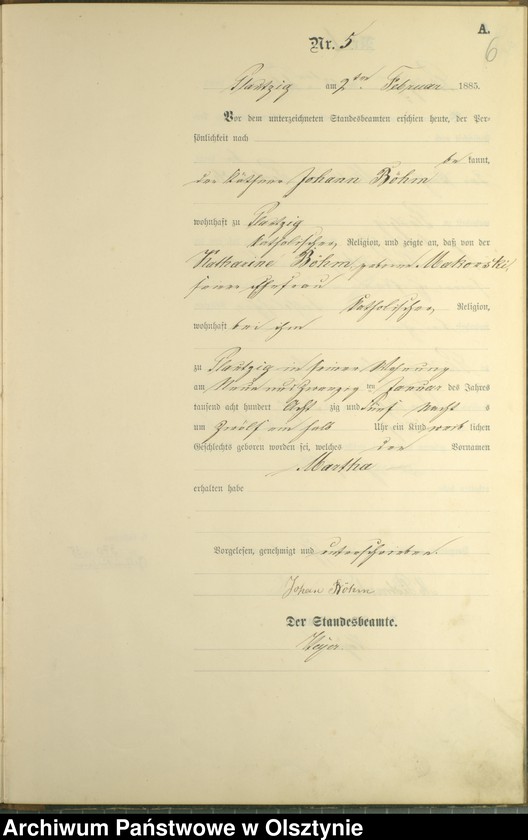 A.
6
Nr. 5
Plautzig am 2ten Februar 1885.
Vor dem unterzeichneten Standesbeamten erschien heute, der Per-
sönlichkeit nach
be kannt,
der Käthner Johann Böhm
wohnhaft zu Plautzig
katholischer Religion, und zeigte an, daß von der
Katharine Böhm geborene Makowski,
seiner Ehefrau
katholischer Religion,
wohnhaft bei ihm
zu Plautzig in seiner Wohnung
am Neunundzwanzig ten Januar des Jahres
tausend acht hundert Acht zig und fünf Nacht s
um Zwölf ein halb Uhr ein Kind weib lichen
Geschlechts geboren worden sei, welches den Vornamen
Martha
erhalten habe
Vorgelesen, genehmigt und unterschrieben
Johan Böhm
Der Standesbeamte.
Archiwum Państwowe w Olsztynie